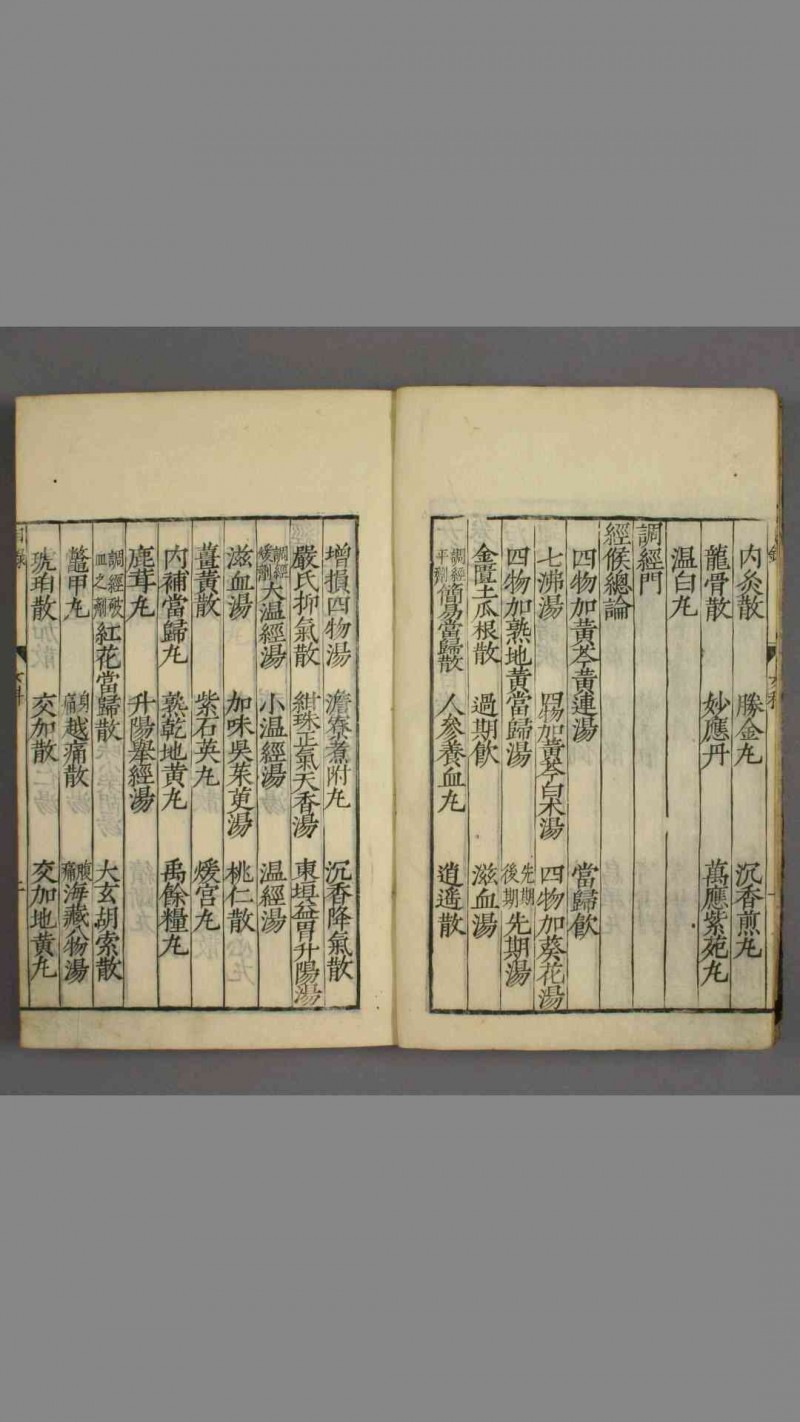 内灸散 勝金丸 沉香煎丸
龍骨散 妙應丹 萬應紫苑丸
温白丸
調經門
經候總論
四物加黄芩黄連湯 當歸飲
七沸湯 四物加黄芩白朮湯 四物加葵花湯
四物加熟地黄當歸湯 先期後期先期湯
金匱土瓜根散 過期飲 滋血湯
調經平劑簡易當歸散 人參養血丸 逍遥散
增損四物湯 澹寮煮附丸 沉香降氣散
嚴氏抑氣散 紺珠正氣天香湯 東垣益胃升陽湯
調經煖劑大温經湯 小温經湯 温經湯
滋血湯 加味吳茱萸湯 桃仁散
薑黄散 紫石英丸 煖宫丸
内補當歸丸 熟乾地黄丸 禹餘糧丸
鹿茸丸 升陽舉經湯
調經破血之劑紅花當歸散 大玄胡索散
鱉甲丸 身痛越痛散 腹痛海藏八物湯
琥珀散 交加散 交加地黄丸